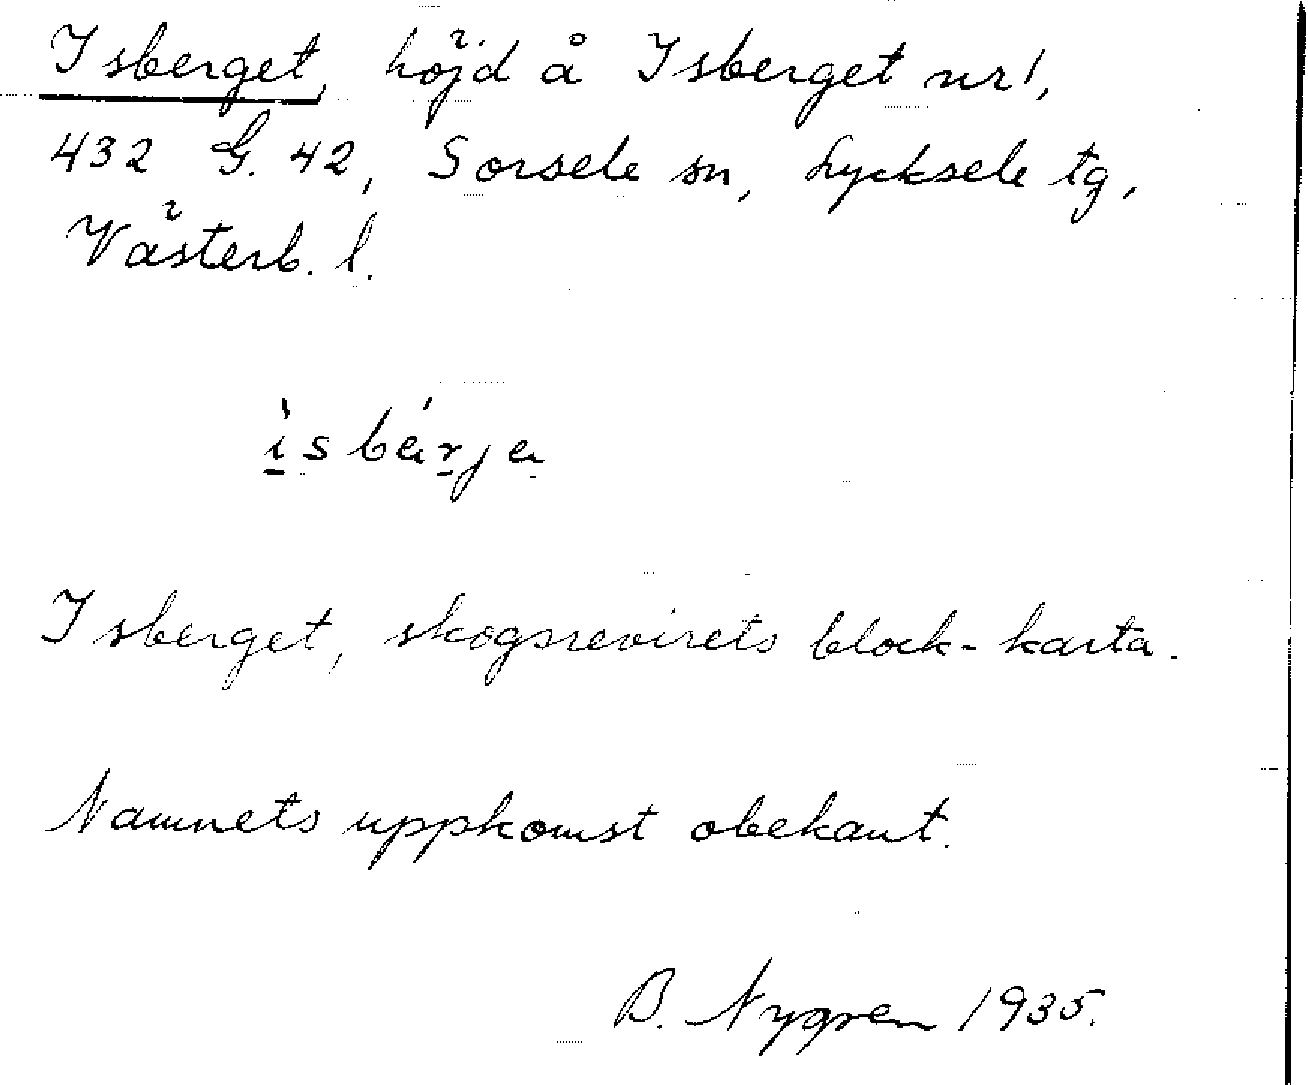 Isberget, höjd å Isberget nr 1,
432 G. 42, Sorsele sn, Lycksele tg,
Västerb. l.
Isberget, skogsrevirets block-karta.
Namnets uppkomst obekant.
B. Nygren 1935.